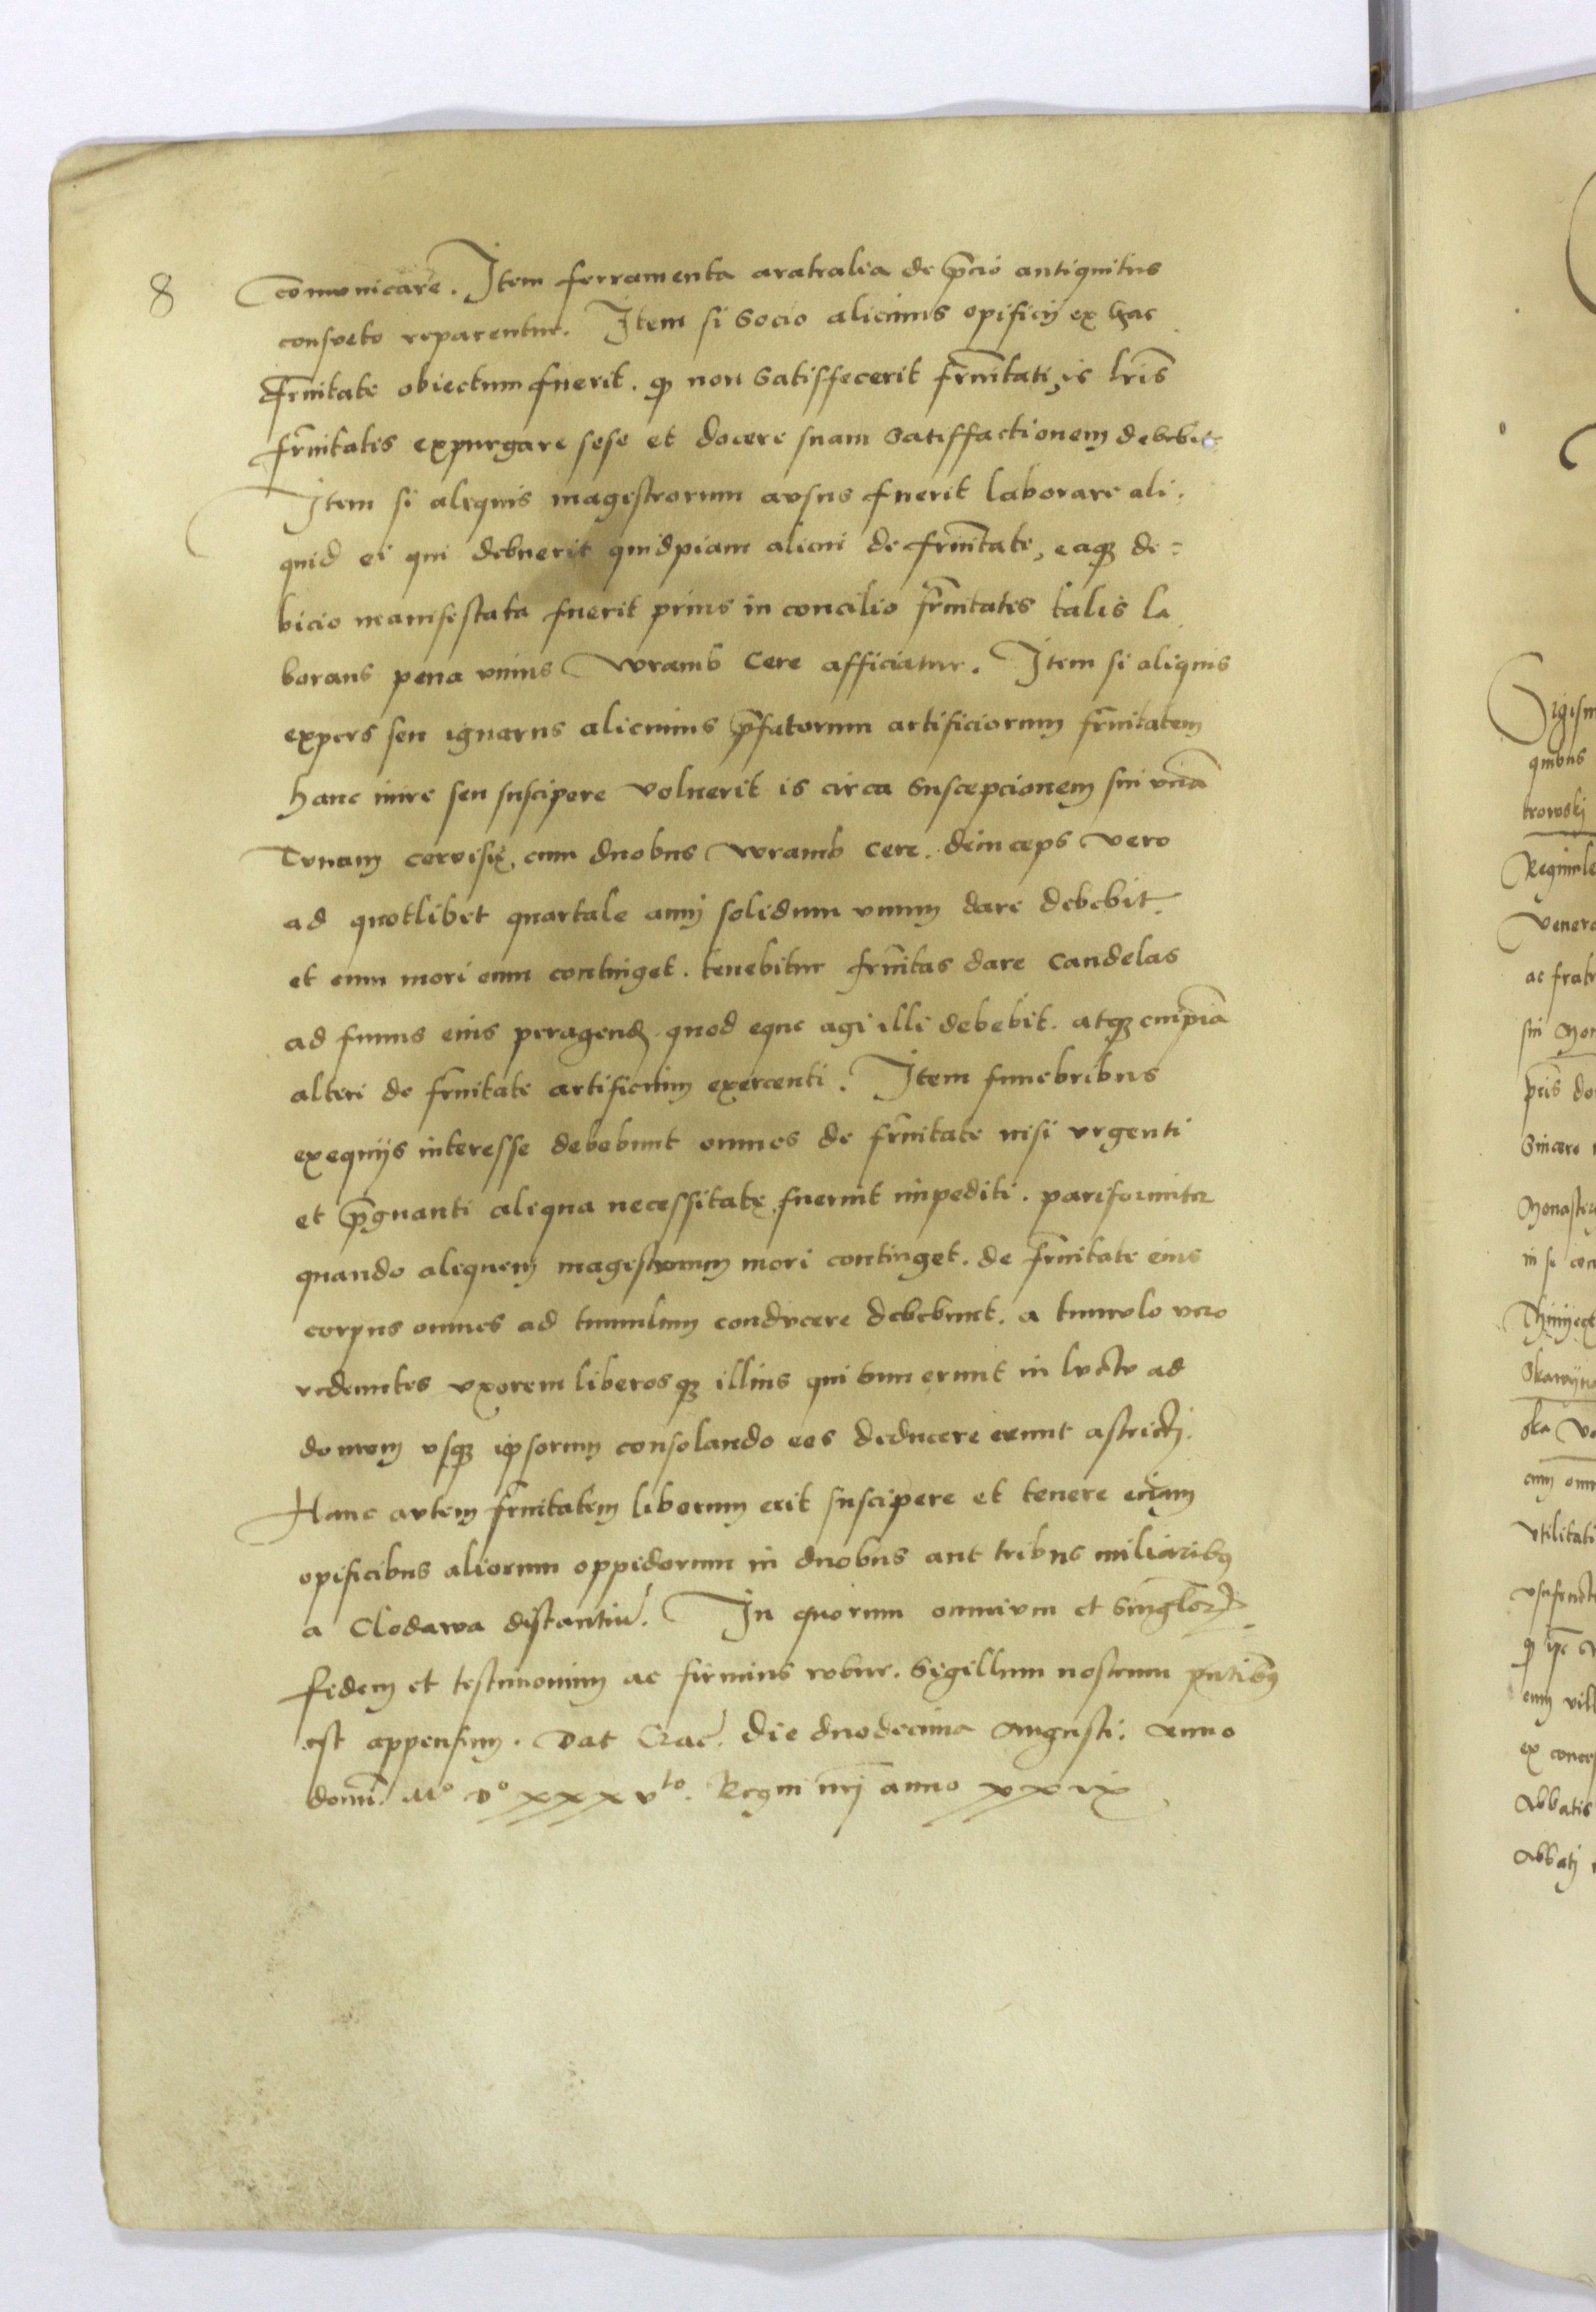 8
com̄unicare. Item ferramenta aratralia de p̄cio antiquitus
consueto reparentur. Item si socio alicuius opificij ex hac
fr̄nitate obiectum fuerit. ꝙ non satisfecerit fr̄nitati, is lr̄is
fr̄nitatis expurgare sese et docere suam satisffactionem debebit
Item si aliquis magistrorum ausus fuerit laborare ali-
quid ei qui debuerit quidpiam alicui de fr̄nitate, eaqꝫ de=
bicio manifestata fuerit prius in concilio fr̄nitatis talis la
borans pena vnius wramb cere afficiatur. Item si aliquis
expers seu ignarus alicuius p̄fatorum artificiorum fr̄nitatem
hanc inire seu suscipere voluerit is circa suscepcionem sui vnā
Tunam cervisię, cum duobus wramb cere. deinceps vero
ad quotlibet quartale anni solidum vnum dare debebit.
et cum mori eum continget. tenebitur fr̄nitas dare candelas
ad funus eius peragend̄. quod eque agi illi debebit. atqꝫ cuipiā
alteri de fr̄nitate artificium exercenti. Item funebribus
exequijs interesse debebunt omnes de fr̄nitate nisi vrgenti
et p̄gnanti aliqua necessitate fuerint impediti. pariformiter
quando aliquem magistrorum mori continget. de fr̄nitate eius
corpus omnes ad tumulum conducere debebunt. a tumulo vero
redeuntes vxorem liberosqꝫ illius qui tum erunt in luctu ad
domum vsqꝫ ipsorum consolando eos deducere erunt astricti.
Hanc autem fr̄nitatem liberum erit suscipere et tenere eciam
opificibus aliorum oppidorum in duobus aut tribus miliaribꝰ
a Clodawa distantiū. In quorum omnium et singlor̄
fidem et testimonium ac firmius robur. Sigillum nostrum pn̄tibꝰ
est appensum. Dat Crac̄. die duodecima Augusti. Anno
domi. Mº Dº xxxvto. Regni nri anno xxix
Sigism
quibus
trowski
Venera
ac fratr
sui Mon
Sincere
Monaster
Vtilitati
ex conces
Abbatis
Abbati